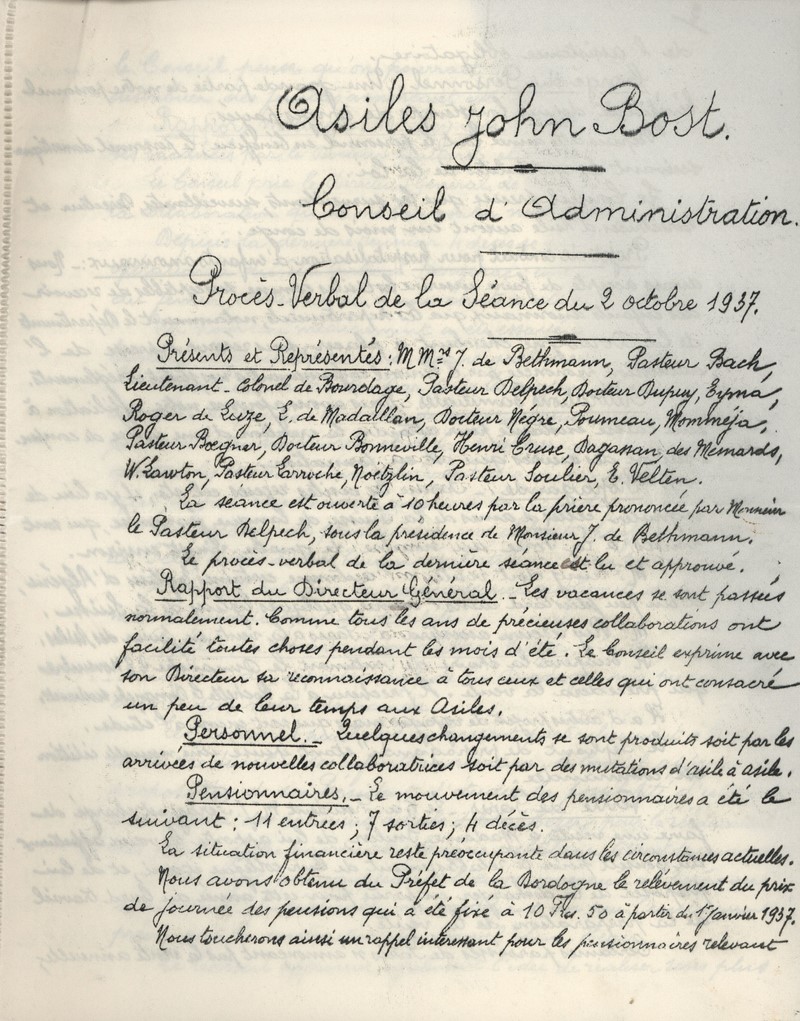 Asiles John Bost.
Conseil d'Administration.
Procès-Verbal de la Séance du 2 octobre 1937.
Présents et Représentés: MMrs J. de Bethmann, Pasteur Bach,
Lieutenant-Colonel de Bourdage, Pasteur Delpech, Docteur Dupuy, Eyma,
Roger de Luze, L. de Madaillan, Docteur Nègre, Poumeau, Momméja,
Pasteur Boegner, Docteur Bonneville, Henri Cruse, Dagassan, des Mesnards,
W. Lawton, Pasteur Larroche, Noetzlin, Pasteur Soulier, E. Velten.
La séance est ouverte à 10 heures par la prière prononcée par Monsieur
le Pasteur Delpech, sous la présidence de Monsieur J. de Bethmann.
Le procès-verbal de la dernière séance est lu et approuvé.
Rapport du Directeur Général.- Les vacances se sont passées
normalement. Comme tous les ans de précieuses collaborations ont
facilité toutes choses pendant les mois d'été. Le Conseil exprime avec
son Directeur sa reconnaissance à tous ceux et celles qui ont consacré
un peu de leur temps aux Asiles.
Personnel.- Quelques changements se sont produits soit par les
arrivées de nouvelles collaboratrices soit par des mutations d'asile à asile.
Pensionnaires.- Le mouvement des pensionnaires a été le
suivant: 11 entrées; 7 sorties; 4 décès.
La situation financière reste préoccupante dans les circonstances actuelles.
Nous avons obtenu du Préfet de la Dordogne le relèvement du prix
de journée des pensions qui a été fixé à 10 Frs. 50 à partir du 1er Janvier 1937.
Nous toucherons ainsi un rappel intéressant pour les pensionnaires relevant